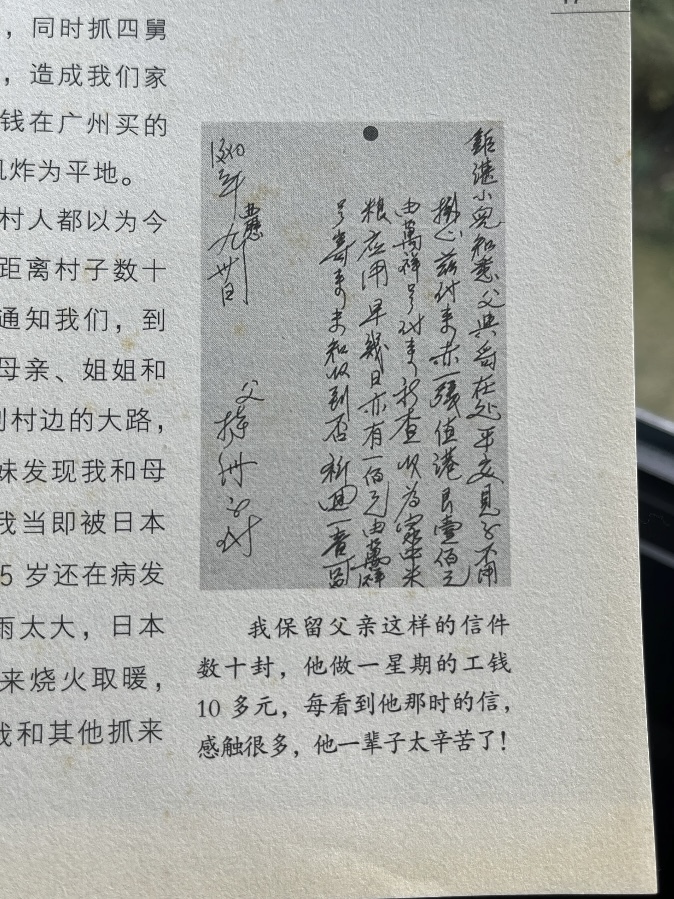 ，同时抓四舅
，造成我们家
钱在广州买的
炸为平地。
村人都以为今
距离村子数十
通知我们，到
母亲、姐姐和
到村边的大路，
妹发现我和母
我当即被日本
5 岁还在病发
雨太大，日本
来烧火取暖，
我和其他抓来
鉅湛小兒知悉父与母在处平安見字不用
掛心茲付来赤一張值港艮壹佰元
由萬祥号付来祈查收为家中米
粮应用早幾日亦有一佰元由萬祥
号寄来未知收到否祈回一音可
1940年
西歷
九月卅日
父
字付
我保留父亲这样的信件
数十封，他做一星期的工钱
10 多元，每看到他那时的信，
感触很多，他一辈子太辛苦了！